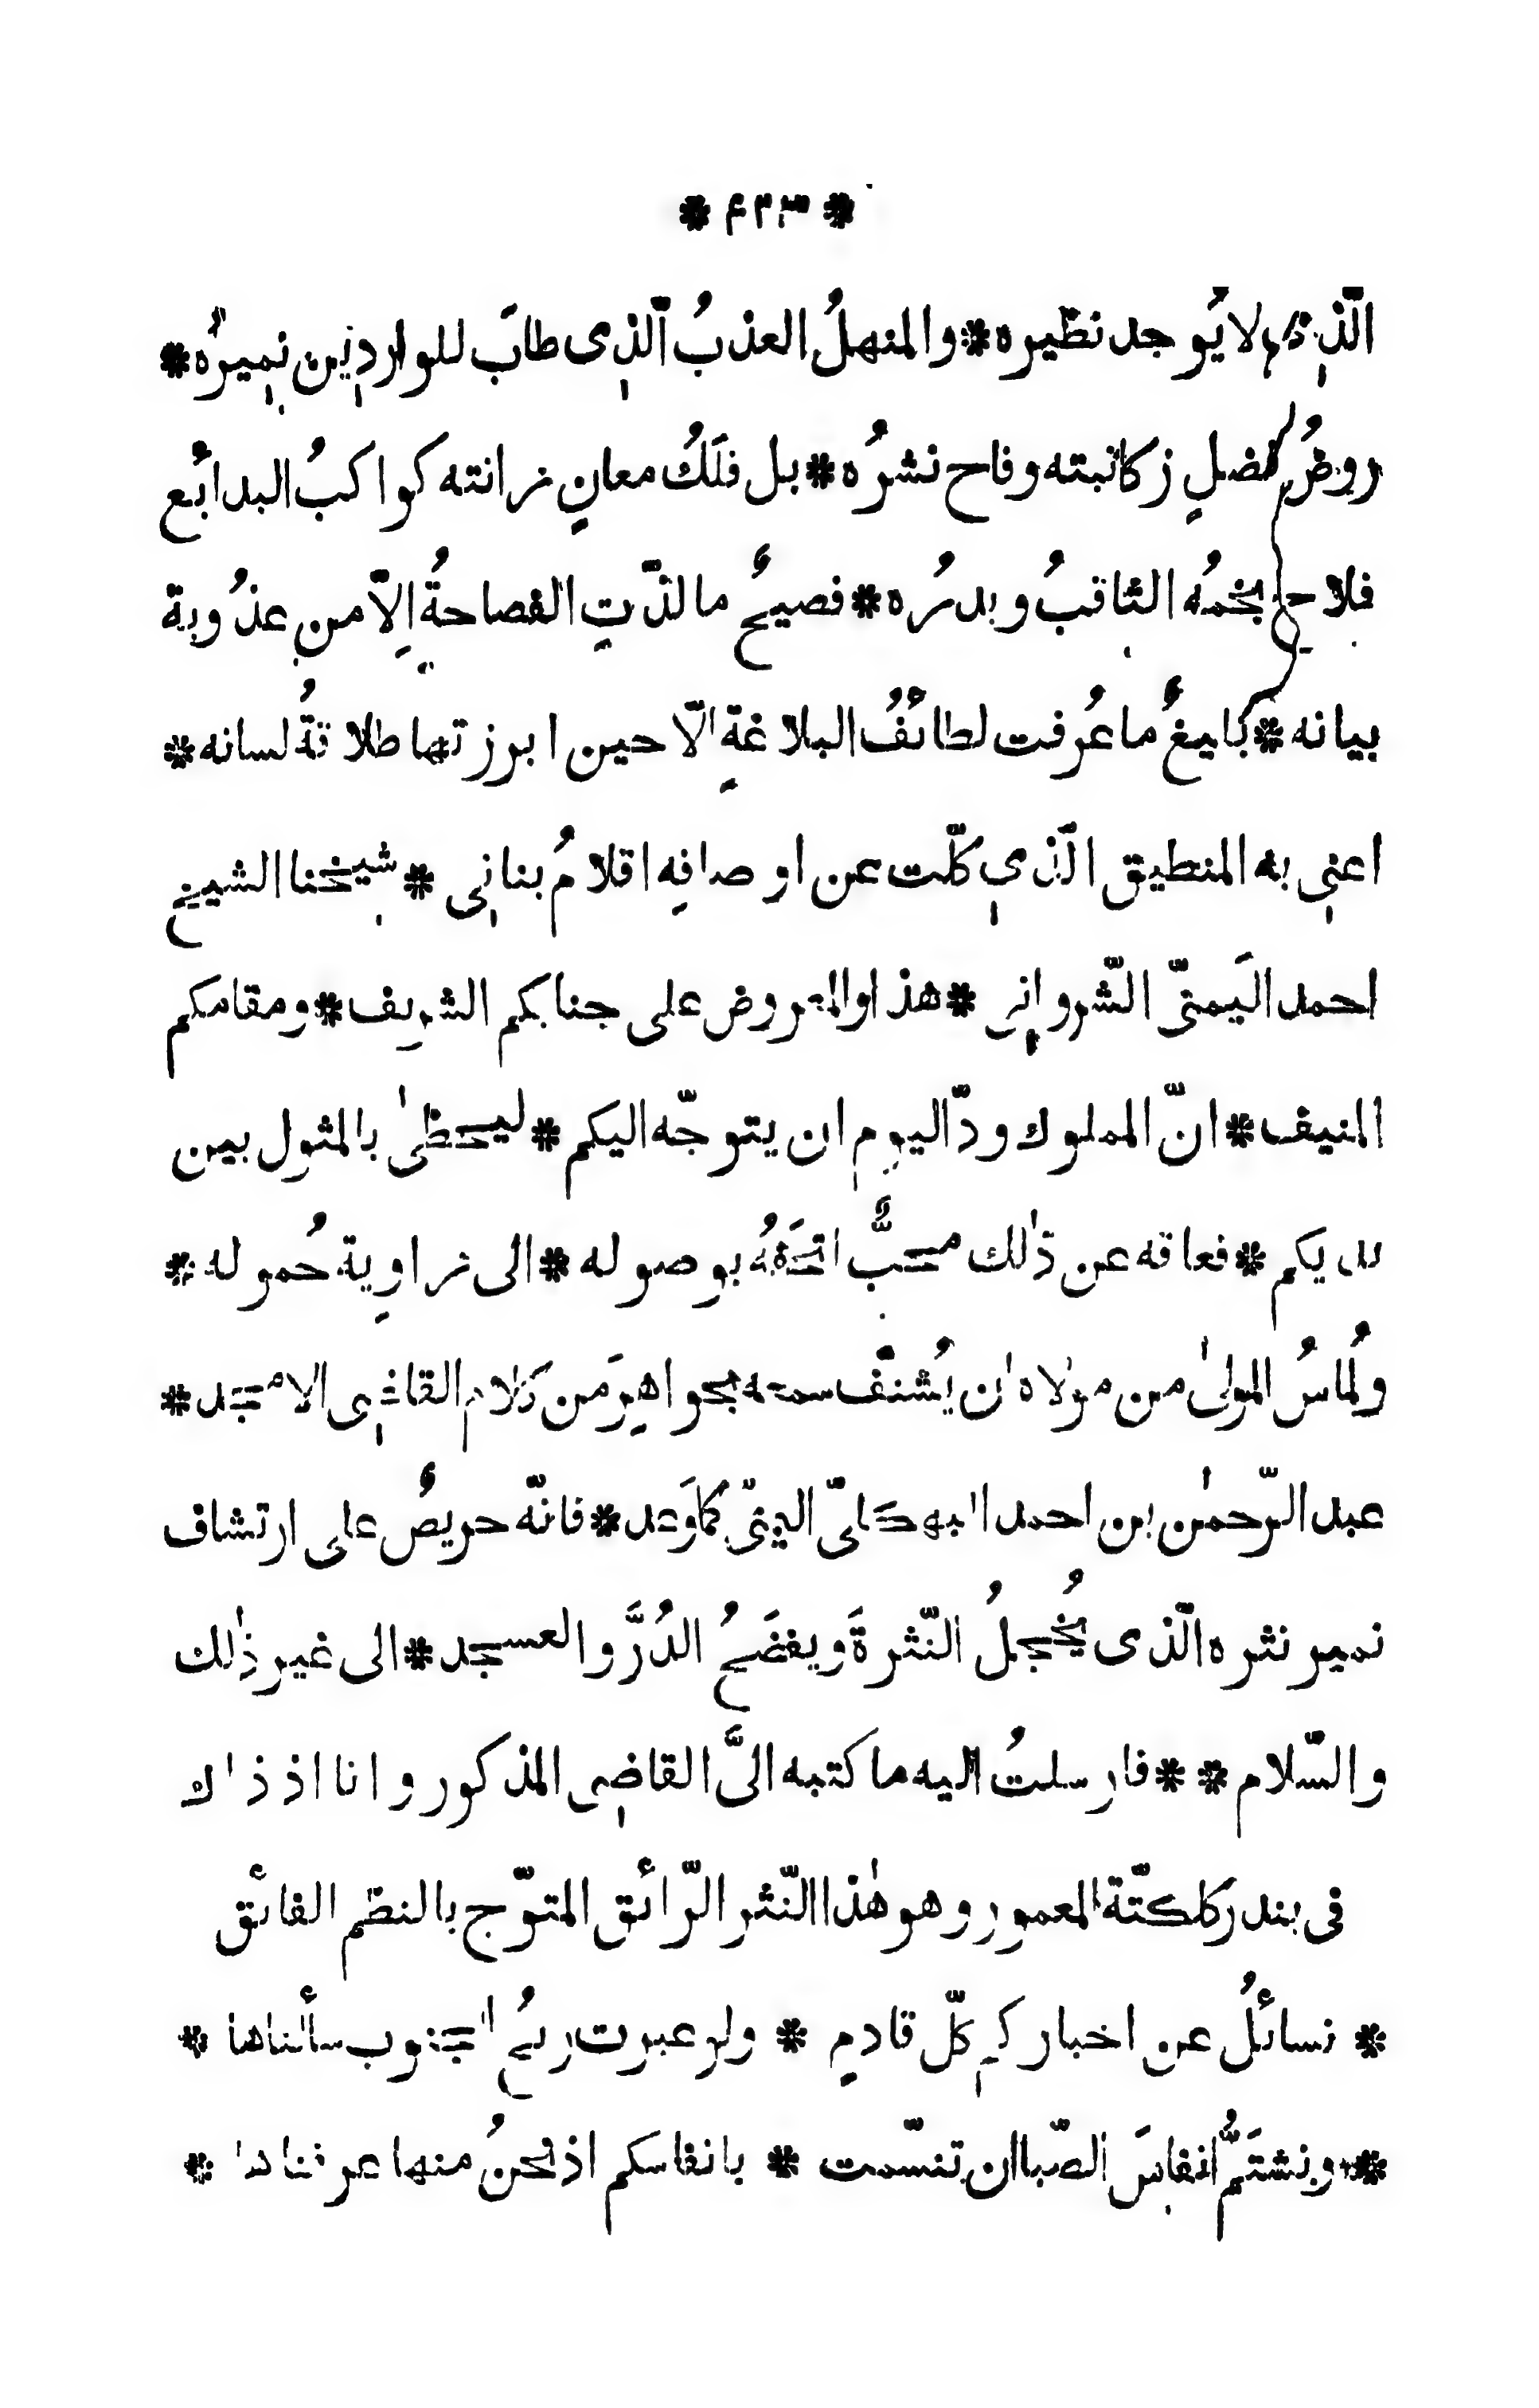 * ٤٢٣ *
الّذِى لا يُوجد نظيره * والمنهلُ العذبُ الّذِى طابَ للوارِدِين نمِيرُه *
روضُ فضلٍ زكا نبته وفاح نشرُه * بل فلَكُ معانٍ زانته كواكبُ البدائع
فلاح نجمُه الثاقبُ وبدرُه * فصيحٌ ما لذّتِ الفصاحةُ اِلّا من عذُوبة
بيانه * بليغٌ ما عُرفت لطائفُ البلاغةِ الّا حين ابرزتها طلاقةُ لسانه *
اعنِى به المنطيق الّذِى كلّت عن اوصافِه اقلامُ بنانِى * شيخنا الشيخ
احمد اليَمنىّ الشّروانِى * هذا والمعروض على جنابكم الشرِيف * ومقامكم
المنيف * انّ المملوك ودّ اليوم ان يتوجّه اليكم * ليحظىٰ بالمثول بين
يديكم * فعاقه عن ذٰلك محبٌّ اتحَفَهُ بوصوله * الى زاوِية حُموله *
ولماسُ المولىٰ من مولاه ان يُشنّف سمعه بجواهِرَ من كلام القاضِى الامجد *
عبد الرّحمٰن بن احمد البهكلىّ اليمنىّ كما وَعد * فانّه حريصٌ على ارتشاف
نمير نثره الّذى يُخجلُ النّثرةَ ويفضَحُ الدُرَّ والعسجد * الى غير ذٰلك
والسّلام * * فارسلتُ اليه ما كتبه الىَّ القاضِى المذكور وانا اذ ذاك
فى بندر كلكتّة المعمور وهو هٰذا النّثر الرّائق المتوّج بالنظم الفائق
* نسائلُ عن اخباركم كلّ قادمٍ * ولو عبرت ريحُ الجنوب سألناها *
* ونشتَمُّ انفاسَ الصّبا ان تنسّمت * بانفاسكم اذ نحنُ منها عرفناها *